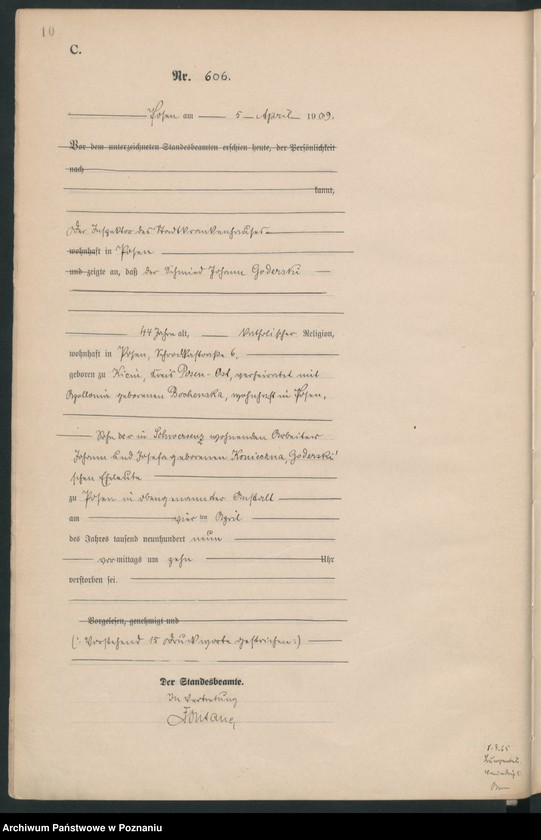 10
C.
Nr. 606.
Posen am 5 April 1909.
Vor dem unterzeichneten Standesbeamten erschien heute, der Persönlichkeit
nach
kannt,
Der Inspektor des Stadtkrankenhauses
wohnhaft in Posen
und zeigte an, daß der Schmied Johann Goderski
44 Jahre alt, katholischer Religion,
wohnhaft in Posen, Schrodkastraße 6,
geboren zu Kicin, Kreis Posen-Ost, verheiratet mit
Apollonia geborenen Bochenska, wohnhaft in Posen,
Sohn der in wohnenden Arbeiter
Johann und Josefa geborenen Konieczna, Goderski'
schen Eheleute
zu Posen in obengenannter Anstalt
am vierten April
des Jahres tausend neunhundert neun
vormittags um zehn Uhr
verstorben sei.
Vorgelesen, genehmigt und
(: Vorstehend 15 Druckworte gestrichen :)
Der Standesbeamte.
In Vertretung
Fontane
Archiwum Państwowe w Poznaniu